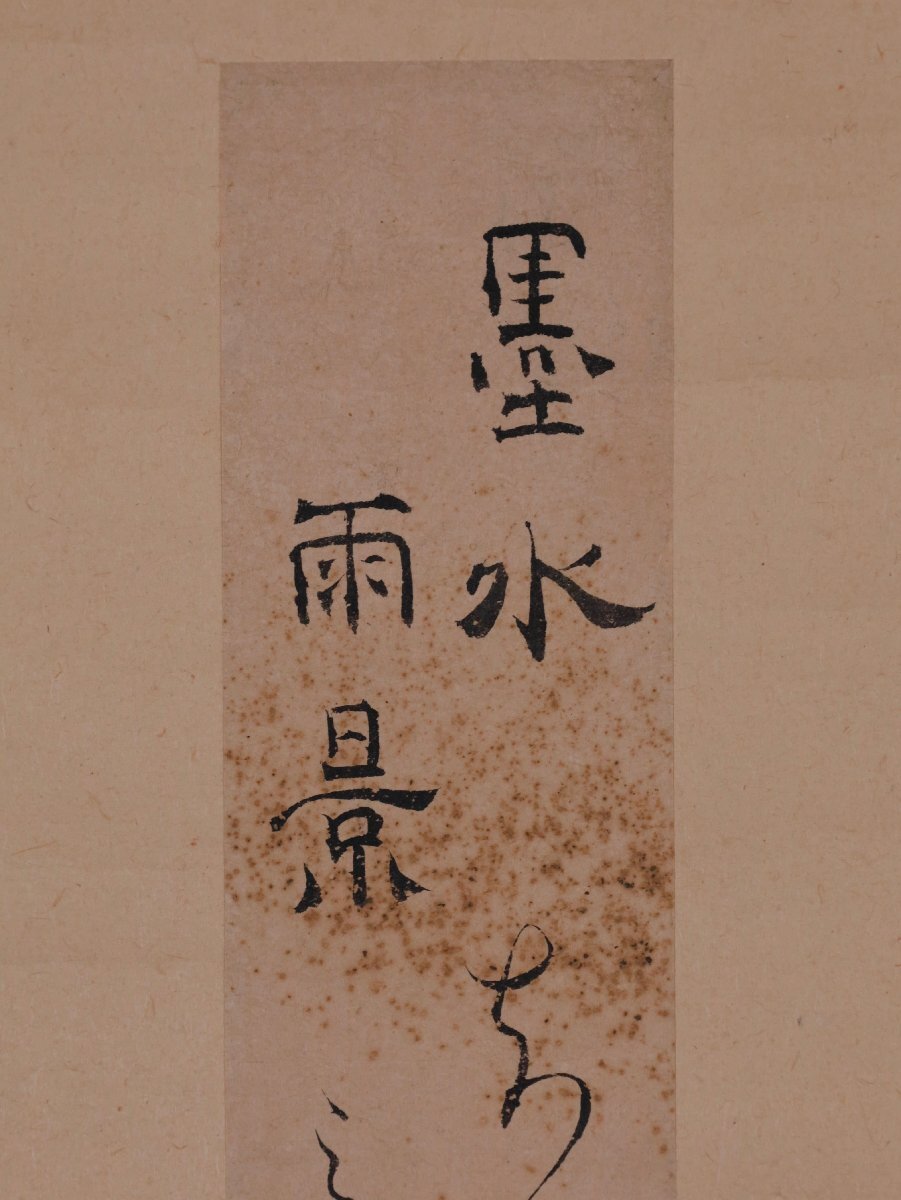 墨水
雨景